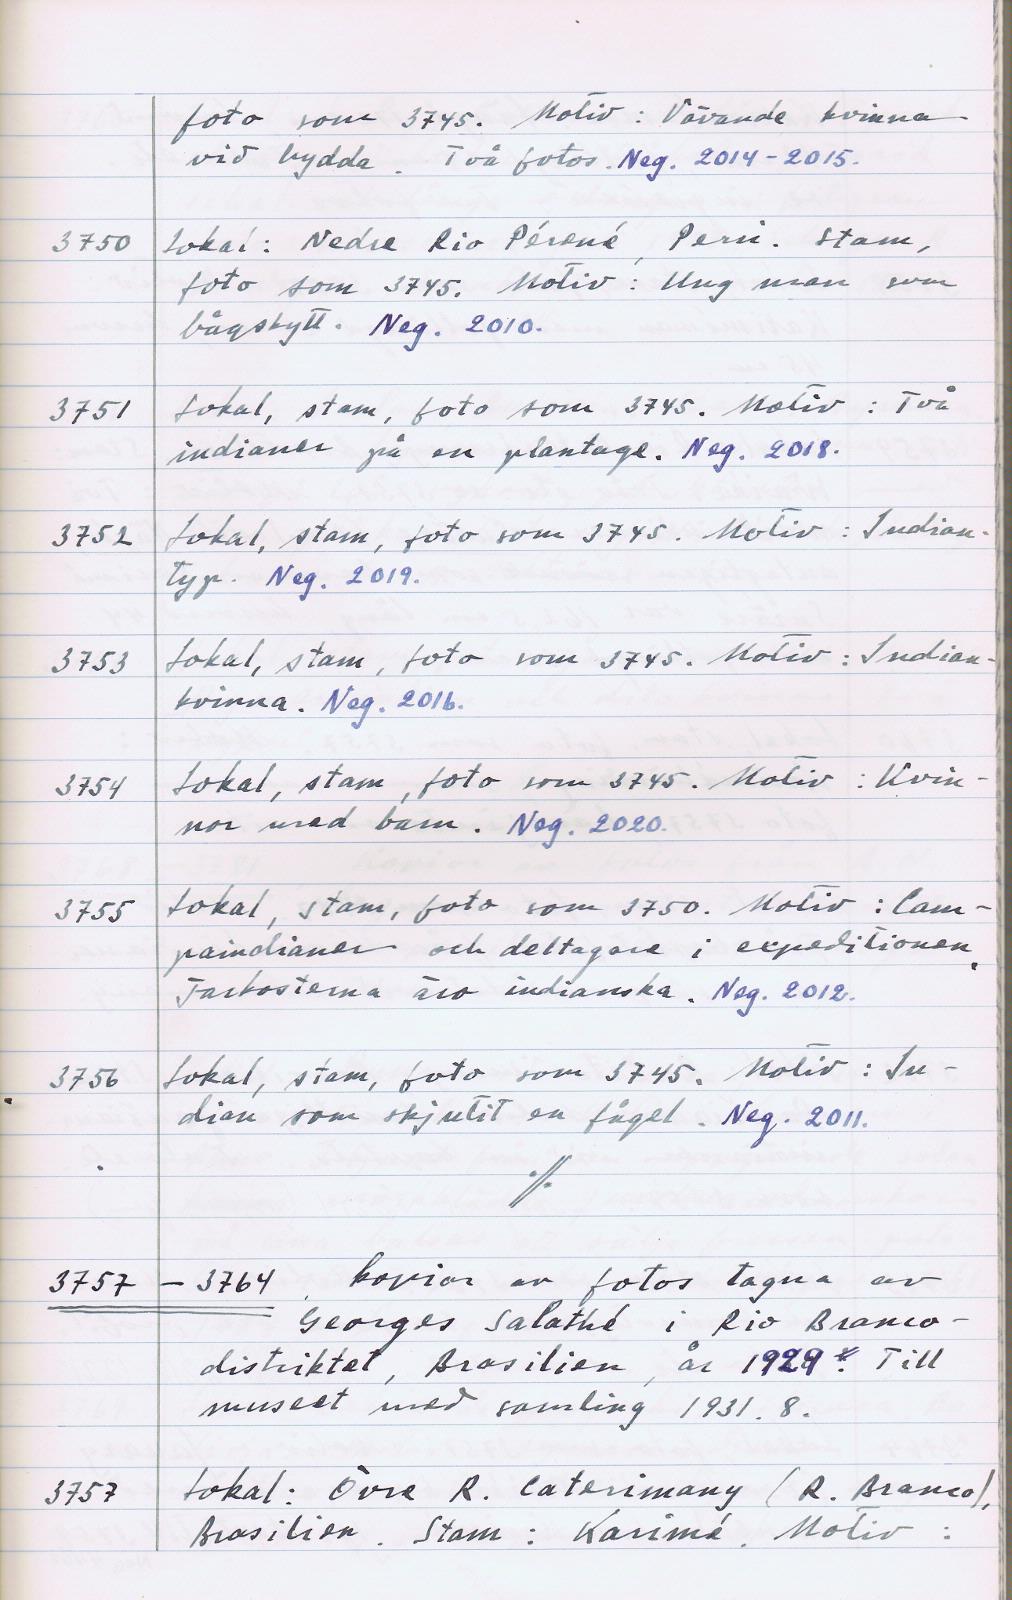 foto som 3745. Motiv: Vävande kvinna
vid hydda. Två fotos. Neg. 2014-2015.
3750 Lokal: Nedre Rio Pérené, Peru. Stam,
foto som 3745. Motiv: Ung man som
bågskytt. Neg. 2010.
3751 Lokal, stam, foto som 3745. Motiv: Två
indianer på en plantage. Neg. 2018.
3752 Lokal, stam, foto som 3745. Motiv: Indian-
typ. Neg. 2019.
3753 Lokal, stam, foto som 3745. Motiv: Indian-
kvinna. Neg. 2016.
3754 Lokal, stam, foto som 3745. Motiv: Kvin-
nor med barn. Neg. 2020.
3755 Lokal, stam, foto som 3750. Motiv: Cam-
paindianer och deltagare i expeditionen.
Farkosterna äro indianska. Neg. 2012.
3756 Lokal, stam, foto som 3745. Motiv: In-
dian som skjutit en fågel. Neg. 2011.
·//.
3757 - 3764, kopior av fotos tagna av
Georges Salathé i Rio Branco-
distriktet, Brasilien, år 1929*. Till
museet med samling 1931.8.
3757 Lokal: Övre R. Caterimany (R. Branco),
Brasilien. Stam: Karimé. Motiv: